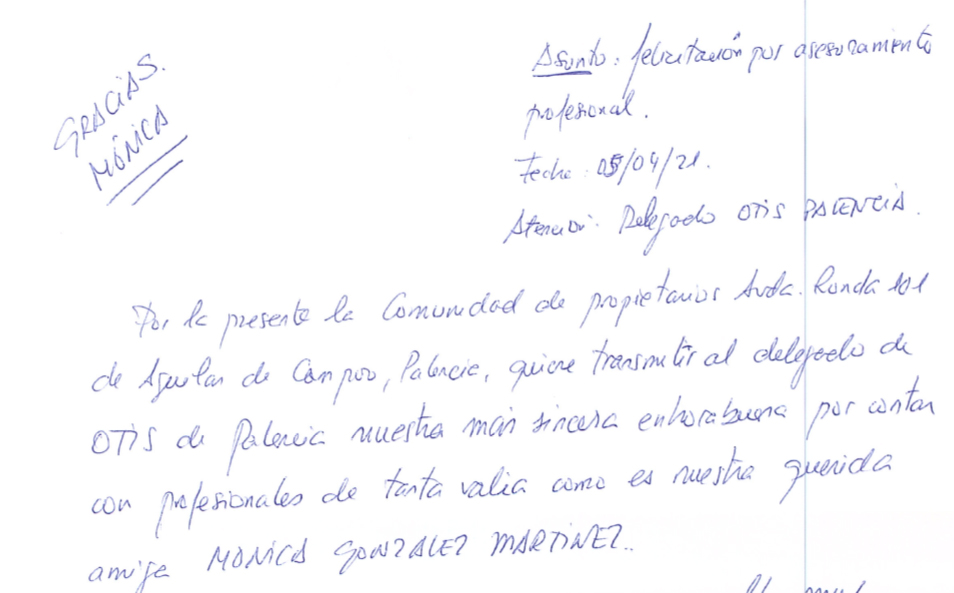 GRACIAS.
MÓNICA
Asunto: felicitación por asesoramiento
profesional.
Fecha: 05/04/21.
Atención: Delegado OTIS PALENCIA.
Por la presente la Comunidad de propietarios Avda. Ronda 101
de Aguilar de Campoo, Palencia, quiere transmitir al delegado de
OTIS de Palencia nuestra más sincera enhorabuena por contar
con profesionales de tanta valia como es nuestra querida
amiga MONICA GONZALEZ MARTINEZ.